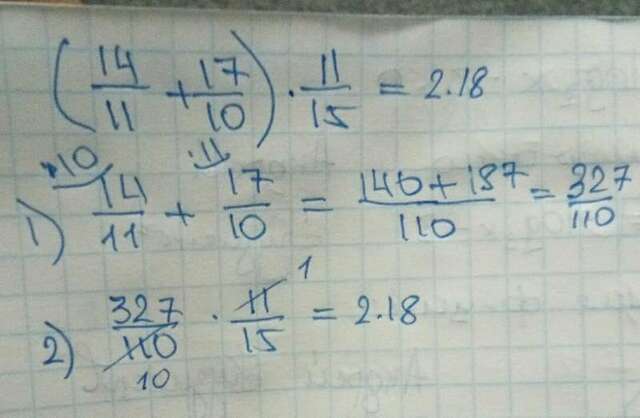 (14/11 + 17/10) · 11/15 = 2.18
1) ·10 14/11 + ·11 17/10 = 140+187/110 = 327/110
2) 327/110 10 · 11/15 1 = 2.18